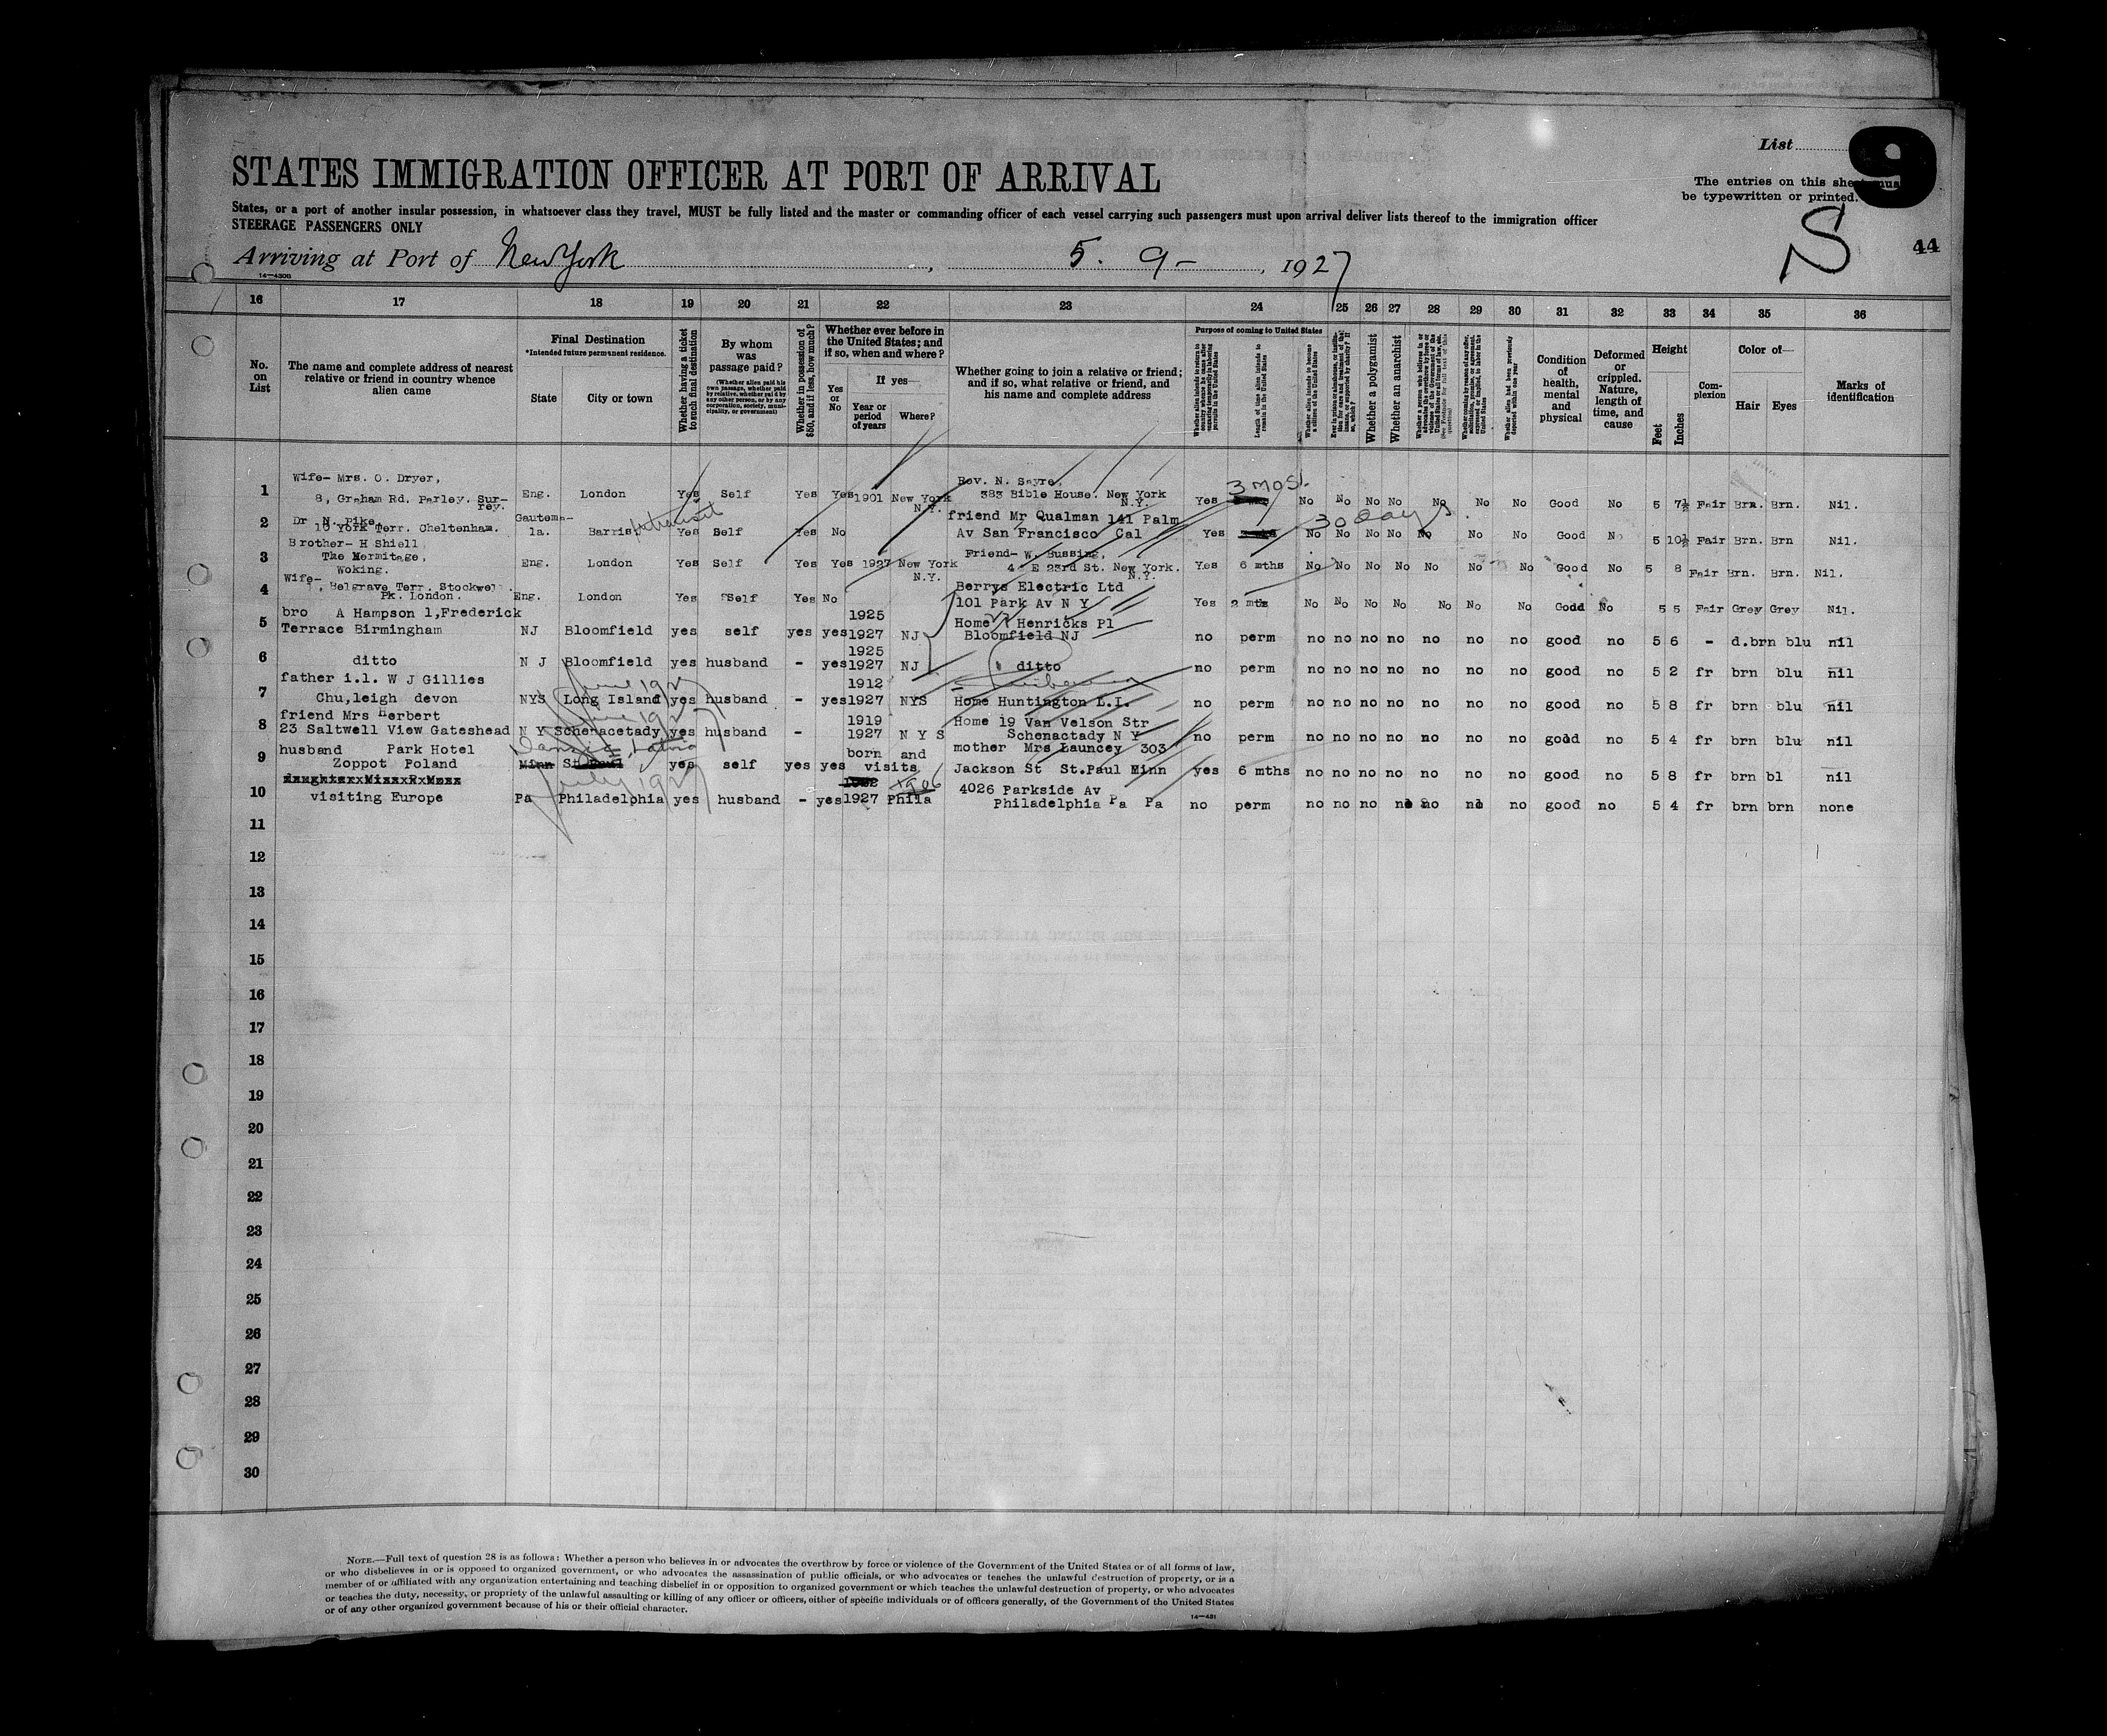 List
9
The entries on this sheet must
be typewritten or printed.
S
44
STATES IMMIGRATION OFFICER AT PORT OF ARRIVAL
States, or a port of another insular possession, in whatsoever class they travel, MUST be fully listed and the master or commanding officer of each vessel carrying such passengers must upon arrival deliver lists thereof to the immigration officer
STEERAGE PASSENGERS ONLY
Arriving at Port of New York, 5. 9-, 1927
14-430G
16 17 18 19 20 21 22 23 24 25 26 27 28 29 30 31 32 33 34 35 36
No. on List
The name and complete address of nearest relative or friend in country whence alien came
Final Destination
*Intended future permanent residence.
State
City or town
Whether having a ticket to such final destination
By whom was passage paid?
(Whether alien paid his own passage, whether paid by relative, whether paid by any other person, or by any corporation, society, municipality, or government)
Whether in possession of $50, and if less, how much?
Whether ever before in the United States; and if so, when and where?
Yes or No
If yes—
Year or period of years
Where?
Whether going to join a relative or friend; and if so, what relative or friend, and his name and complete address
Purpose of coming to United States
Length of time alien intends to remain in the United States
Whether alien intends to become a citizen of the United States
Whether a polygamist
Whether an anarchist
Whether alien had been previously deported within one year
Condition of health, mental and physical
Deformed or crippled. Nature, length of time, and cause
Height
Feet
Inches
Complexion
Color of—
Hair
Eyes
Marks of identification
1 Wife- Mrs. O. Dryer, 8, Graham Rd. Parley. Surrey. Eng. London Yes Self Yes Yes 1901 New York N.Y. Rev. N. Sayre, 383 Bible House. New York N.Y. Yes 3 mos. No No No No No No No Good No 5 7½ Fair Brn. Brn. Nil.
2 Dr N. Pike, 10 York Terr. Cheltenham. Gautema-la. Barris intransit Yes Self Yes No friend Mr Qualman 141 Palm Av San Francisco Cal Yes 30 days No No No No No No No Good No 5 10½ Fair Brn. Brn. Nil.
3 Brother- H Shiell, The Hermitage, Woking. Eng. London Yes Self Yes Yes 1927 New York N.Y. Friend- W. Bussing, 4 E 23rd St. New York. N.Y. Yes 6 mths No No No No No No No Good No 5 8 Fair Brn. Brn. Nil.
4 Wife-, Belgrave Terr. Stockwell Pk. London. Eng. London Yes Self Yes No Berrys Electric Ltd 101 Park Av N Y Yes 2 mths No No No No No No No Good No 5 5 Fair Grey Grey Nil.
5 bro A Hampson 1, Frederick Terrace Birmingham NJ Bloomfield yes self yes yes 1925 1927 NJ Home Henricks Pl Bloomfield NJ no perm no no no no no no no good no 5 6 - d.brn blu nil
6 ditto N J Bloomfield yes husband - yes 1925 1927 NJ ditto no perm no no no no no no no good no 5 2 fr brn blu nil
7 father i.l. W J Gillies Chu,leigh devon NYS Long Island June 1927 yes husband - yes 1912 1927 NYS Home Huntington L.I. no perm no no no no no no no good no 5 8 fr brn blu nil
8 friend Mrs Herbert 23 Saltwell View Gateshead N Y Schenacetady June 1927 yes husband - 1919 1927 N Y S Home 19 Van Velson Str Schenactady N Y no perm no no no no no no no good no 5 4 fr brn blu nil
9 husband Park Hotel Zoppot Poland Minn St Paul Danzig, Latvia yes self yes yes born and visits mother Mrs Launcey 303 Jackson St St.Paul Minn yes 6 mths no no no no no no no good no 5 8 fr brn bl nil
10 visiting Europe Pa Philadelphia July 1927 yes husband - yes 1906 1927 Phila 4026 Parkside Av Philadelphia Pa Pa no perm no no no no no no no good no 5 4 fr brn brn none
11
12
13
14
15
16
17
18
19
20
21
22
23
24
25
26
27
28
29
30
NOTE.—Full text of question 28 is as follows: Whether a person who believes in or advocates the overthrow by force or violence of the Government of the United States or of all forms of law,
or who disbelieves in or is opposed to organized government, or who advocates the assassination of public officials, or who advocates or teaches the unlawful destruction of property, or is a
member of or affiliated with any organization entertaining and teaching disbelief in or opposition to organized government or which teaches the unlawful destruction of property, or who advocates
or teaches the duty, necessity, or propriety of the unlawful assaulting or killing of any officer or officers, either of specific individuals or of officers generally, of the Government of the United States
or of any other organized government because of his or their official character.
14-431